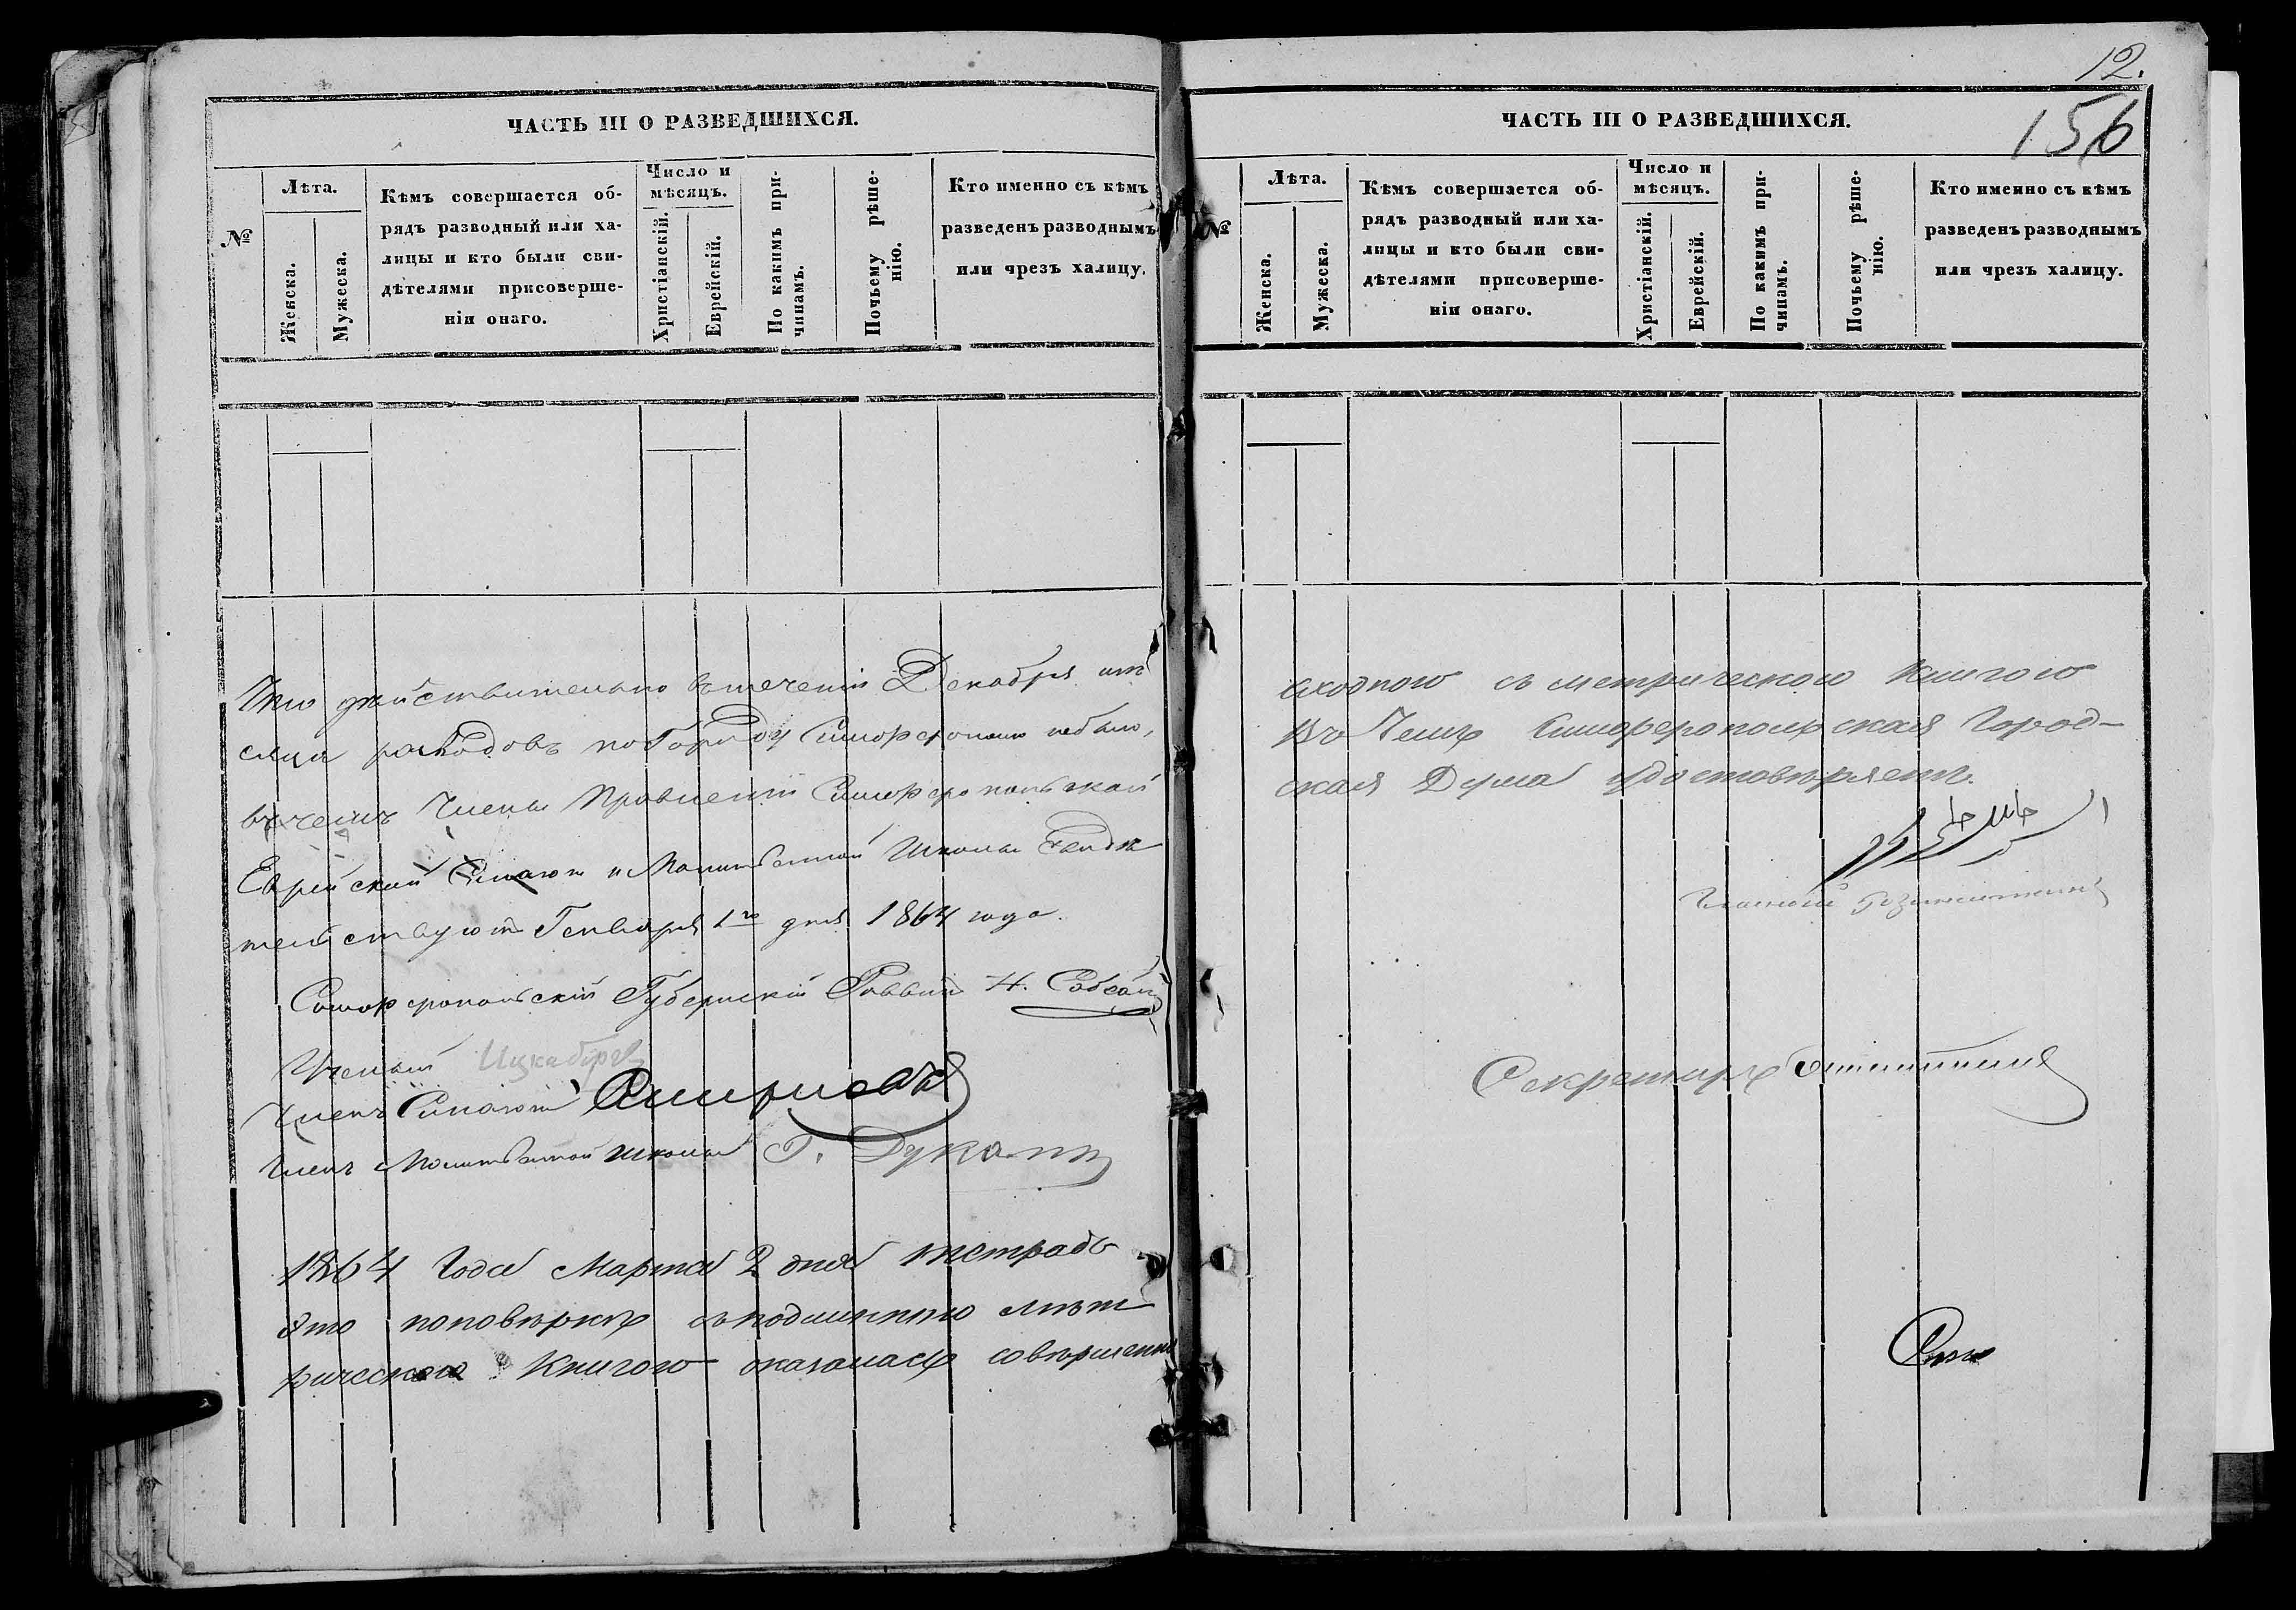 ЧАСТЬ III О РАЗВЕДШИХСЯ.
№
Лѣта.
Женска.
Мужеска.
Кѣмъ совершается об-
рядъ разводный или ха-
лицы и кто были сви-
дѣтелями присоверше-
ніи онаго.
Число и
мѣсяцъ.
Христіанскій.
Еврейскій.
По какимъ при-
чинамъ.
Почьему рѣше-
нію.
Кто именно съ кѣмъ
разведенъ разводнымъ
или чрезъ халицу.
Что дѣйствительно втеченіи Декабря мѣ
сяца разводовъ погороду Симферополю небыло,
въчемъ Члены Правленій Симферопольской
Еврейской Синагоги и Молитвенной Школы
тельствуютъ Генваря 1го дня 1864 года.
Симферопольскій Губернскій Раввинъ Н.
Ученый
Членъ Синагоги
Членъ Молитвенной школы Г. Дуканъ
1864 Года Марта 2 дня тетрадь
эта поповѣркѣ съподлинною мѣт
рическою Книгою оказалась совершенно
12.
156
ЧАСТЬ III О РАЗВЕДШИХСЯ.
№
Лѣта.
Женска.
Мужеска.
Кѣмъ совершается об-
рядъ разводный или ха-
лицы и кто были сви-
дѣтелями присоверше-
ніи онаго.
Число и
мѣсяцъ.
Христіанскій.
Еврейскій.
По какимъ при-
чинамъ.
Почьему рѣше-
нію.
Кто именно съ кѣмъ
разведенъ разводнымъ
или чрезъ халицу.
сходною съ метрическою книгою
Въ Чемъ Симферопольская Город-
ская Дума удостовѣряетъ.
Гласный
Секретарь